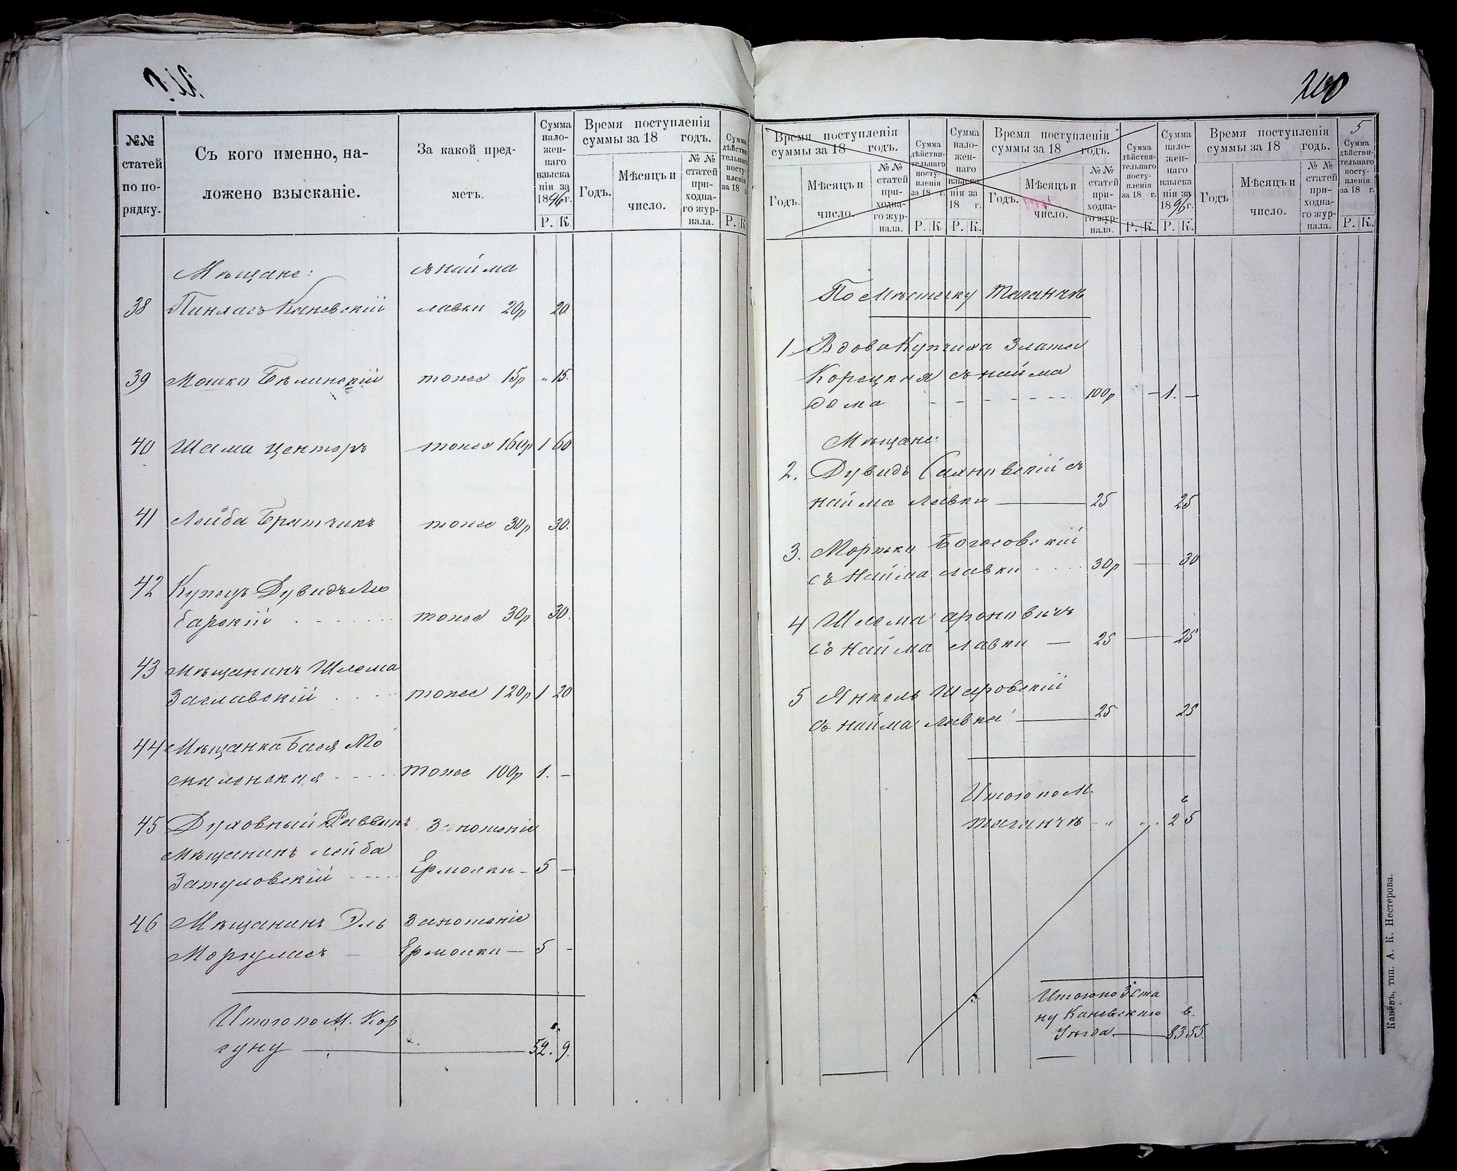 240
№№ статей по порядку.
Съ кого именно, наложено взысканіе.
За какой предметъ.
Сумма наложеннаго взысканія за 1896 г.
Р. К.
Время поступленія суммы за 18 годъ.
Годъ.
Мѣсяцъ и число.
№№ статей приходнаго журнала.
Сумма дѣйствительнаго поступленія за 18 г.
Р. К
Мѣщане:
съ найма
38 Пинхасъ Каневскій лавки 20р 20
39 Мошко Бѣлинскій тоже 15р " 15.
40 тоже 160р 1 60
41 Лейба Братчикъ тоже 30р 30.
42 Купецъ Дувидъ Лю
барскій тоже 30р 30.
43 Мѣщанинъ Шлема
Заславскій тоже 120р 1 20
44 Мѣщанка Бася
тоже 100р 1. —
45 Духовный Раввинъ За ношеніе
Мѣщанинъ Лейба
Затуловскій Ермолки — 5 —
46 Мѣщанинъ Эль За ношеніе
Моргулисъ — Ермолки — 5 —
Итого по М. Кор
суну 52. 9.
5
Время поступленія суммы за 18 годъ.
Годъ.
Мѣсяцъ и число.
№№ статей приходнаго журнала.
Сумма дѣйствительнаго поступленія за 18 г.
Р. К
Сумма наложеннаго взысканія за 18 г.
Р. К.
Время поступленія суммы за 18 годъ.
Годъ.
Мѣсяцъ и число.
№№ статей приходнаго журнала.
Сумма дѣйствительнаго поступленія за 18 г.
Р. К.
Сумма наложеннаго взысканія за 1896 г.
Р. К.
Время поступленія суммы за 18 годъ.
Годъ
Мѣсяцъ и число.
№№ статей приходнаго журнала.
Сумма дѣйствительнаго поступленія за 18 г.
Р. К.
По Мѣстечку Таганчѣ
1 Вдова Купчиха Злата
Корецкая съ найма
дома 100р — 1. —
Мѣщане:
2. Дувидъ съ
найма лавки — 25 25
3. Мортко Богославскій
съ найма лавки 30р — 30
4 Шлема Ароновичъ
съ найма лавки — 25 — 25
5 Янкель Шаровскій
съ найма лавки — 25 25
Итого по М.
Таганчѣ 2 5
Итого по 3 ста
ну Каневскаго
Уѣзда — 83 55
Каневъ, тип. А. К. Нестерова.